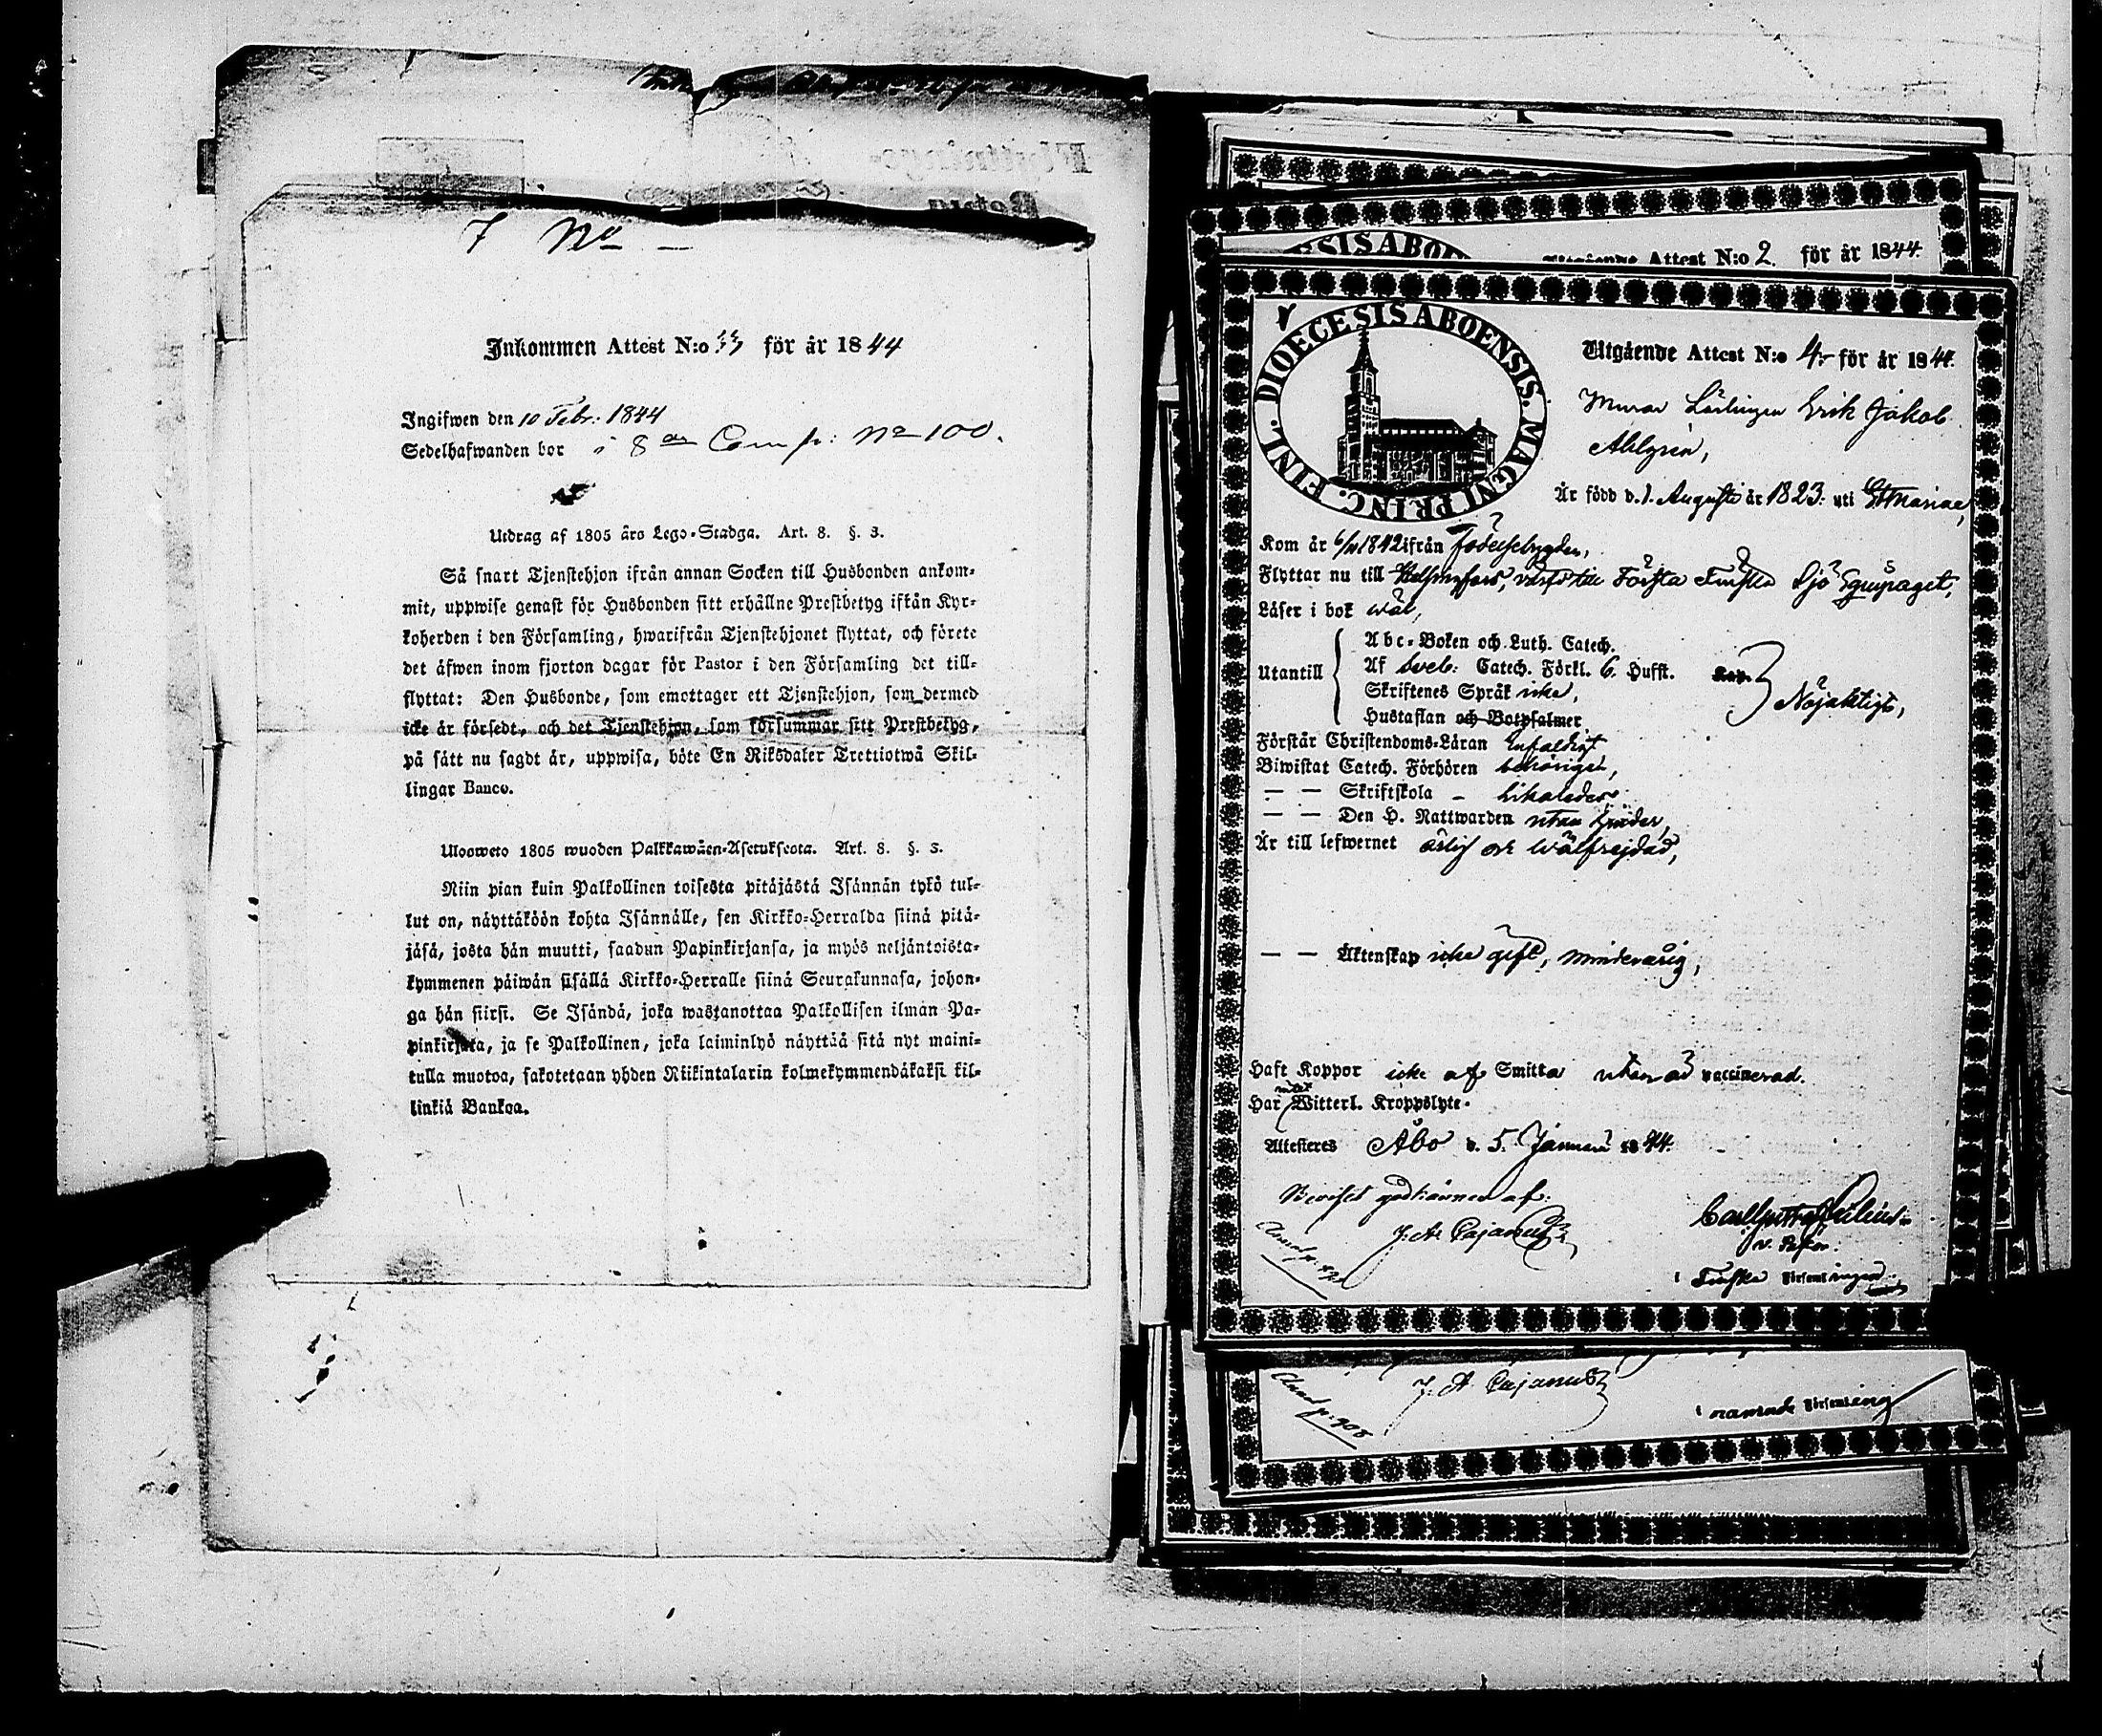 7 No —
Inkommen Attest N:o 33 för år 1844
Ingifwen den 10 Febr: 1844
Sedelhafwanden bor i 8de Comp: No 100.
Utdrag af 1805 års Lego-Stadga. Art. 8. §. 3.
Så snart Tjenstehjon ifrån annan Socken till Husbonden ankom-
mit, uppwise genast för Husbonden sitt erhållne Prestbetyg ifrån Kyr-
koherden i den Församling, hwarifrån Tjenstehjonet flyttat, och förete
det äfwen inom fjorton dagar för Pastor i den Församling det till-
flyttat: Den Husbonde, som emottager ett Tjenstehjon, som dermed
icke är försedt, och det Tjenstehjon, som försummar sitt Prestbetyg,
på sätt nu sagdt är, uppwisa, böte En Riksdaler Trettiotwå Skil-
lingar Banco.
Ulosweto 1805 wuoden Palkkawäen-Asetuksesta. Art. 8. §. 3.
Niin pian kuin Palkollinen toisesta pitäjästä Isännän tykö tul-
lut on, näyttäköön kohta Isännälle, sen Kirkko-Herralda siinä pitä-
jäsä, josta hän muutti, saadun Papinkirjansa, ja myös neljäntoista-
kymmenen päiwän sisällä Kirkko-Herralle siinä Seurakunnasa, johon-
ga hän siirsi. Se Isändä, joka wastanottaa Palkollisen ilman Pa-
pinkirjata, ja se Palkollinen, joka laiminlyö näyttää sitä nyt maini-
tulla muotoa, sakotetaan yhden Riikintalarin kolmekymmendäkaksi kil-
linkiä Bankoa.
Flyttnings-
Betyg
Utgående Attest N:o 2 för år 1844.
DIOECESIS ABOENSIS. MAGNI PRINC. FINL.
Utgående Attest N:o 4:- för år 1844.
Murar Lärlingen Erik Jakob
Ahlgren,
Är född d. 1. Augusti år 1823: uti St Mariae,
Kom år 6/11 1842 ifrån födelsebygden,
Flyttar nu till Helsingfors, till Första Finska Sjö Equipaget,
Läser i bok wäl,
Utantill
Abc-Boken och Luth. Catech.
Af Sveb: Catech. Förkl. 6. Hufst.
Skriftenes Språk icke,
Hustaflan och Botpsalmer
Nöjaktigt,
Förstår Christendoms-Läran Enfaldigt
Biwistat Catech. Förhören behörigen,
— — Skriftskola - likaledes
— — Den H. Nattwarden utan hinder,
Är till lefwernet ärlig och wälfrejdad,
— — Äktenskap icke gift, minderårig,
Haft Koppor icke af Smitta utan är vaccinerad.
Har intet Witterl. Kroppslyte.
Attesteras Åbo d. 5. Januari 1844.
Beviset godkännes af:
J. A. Cajanus
v. Pastor:
i Finska Församlingen
J. A. Cajanus
i namnde Församling